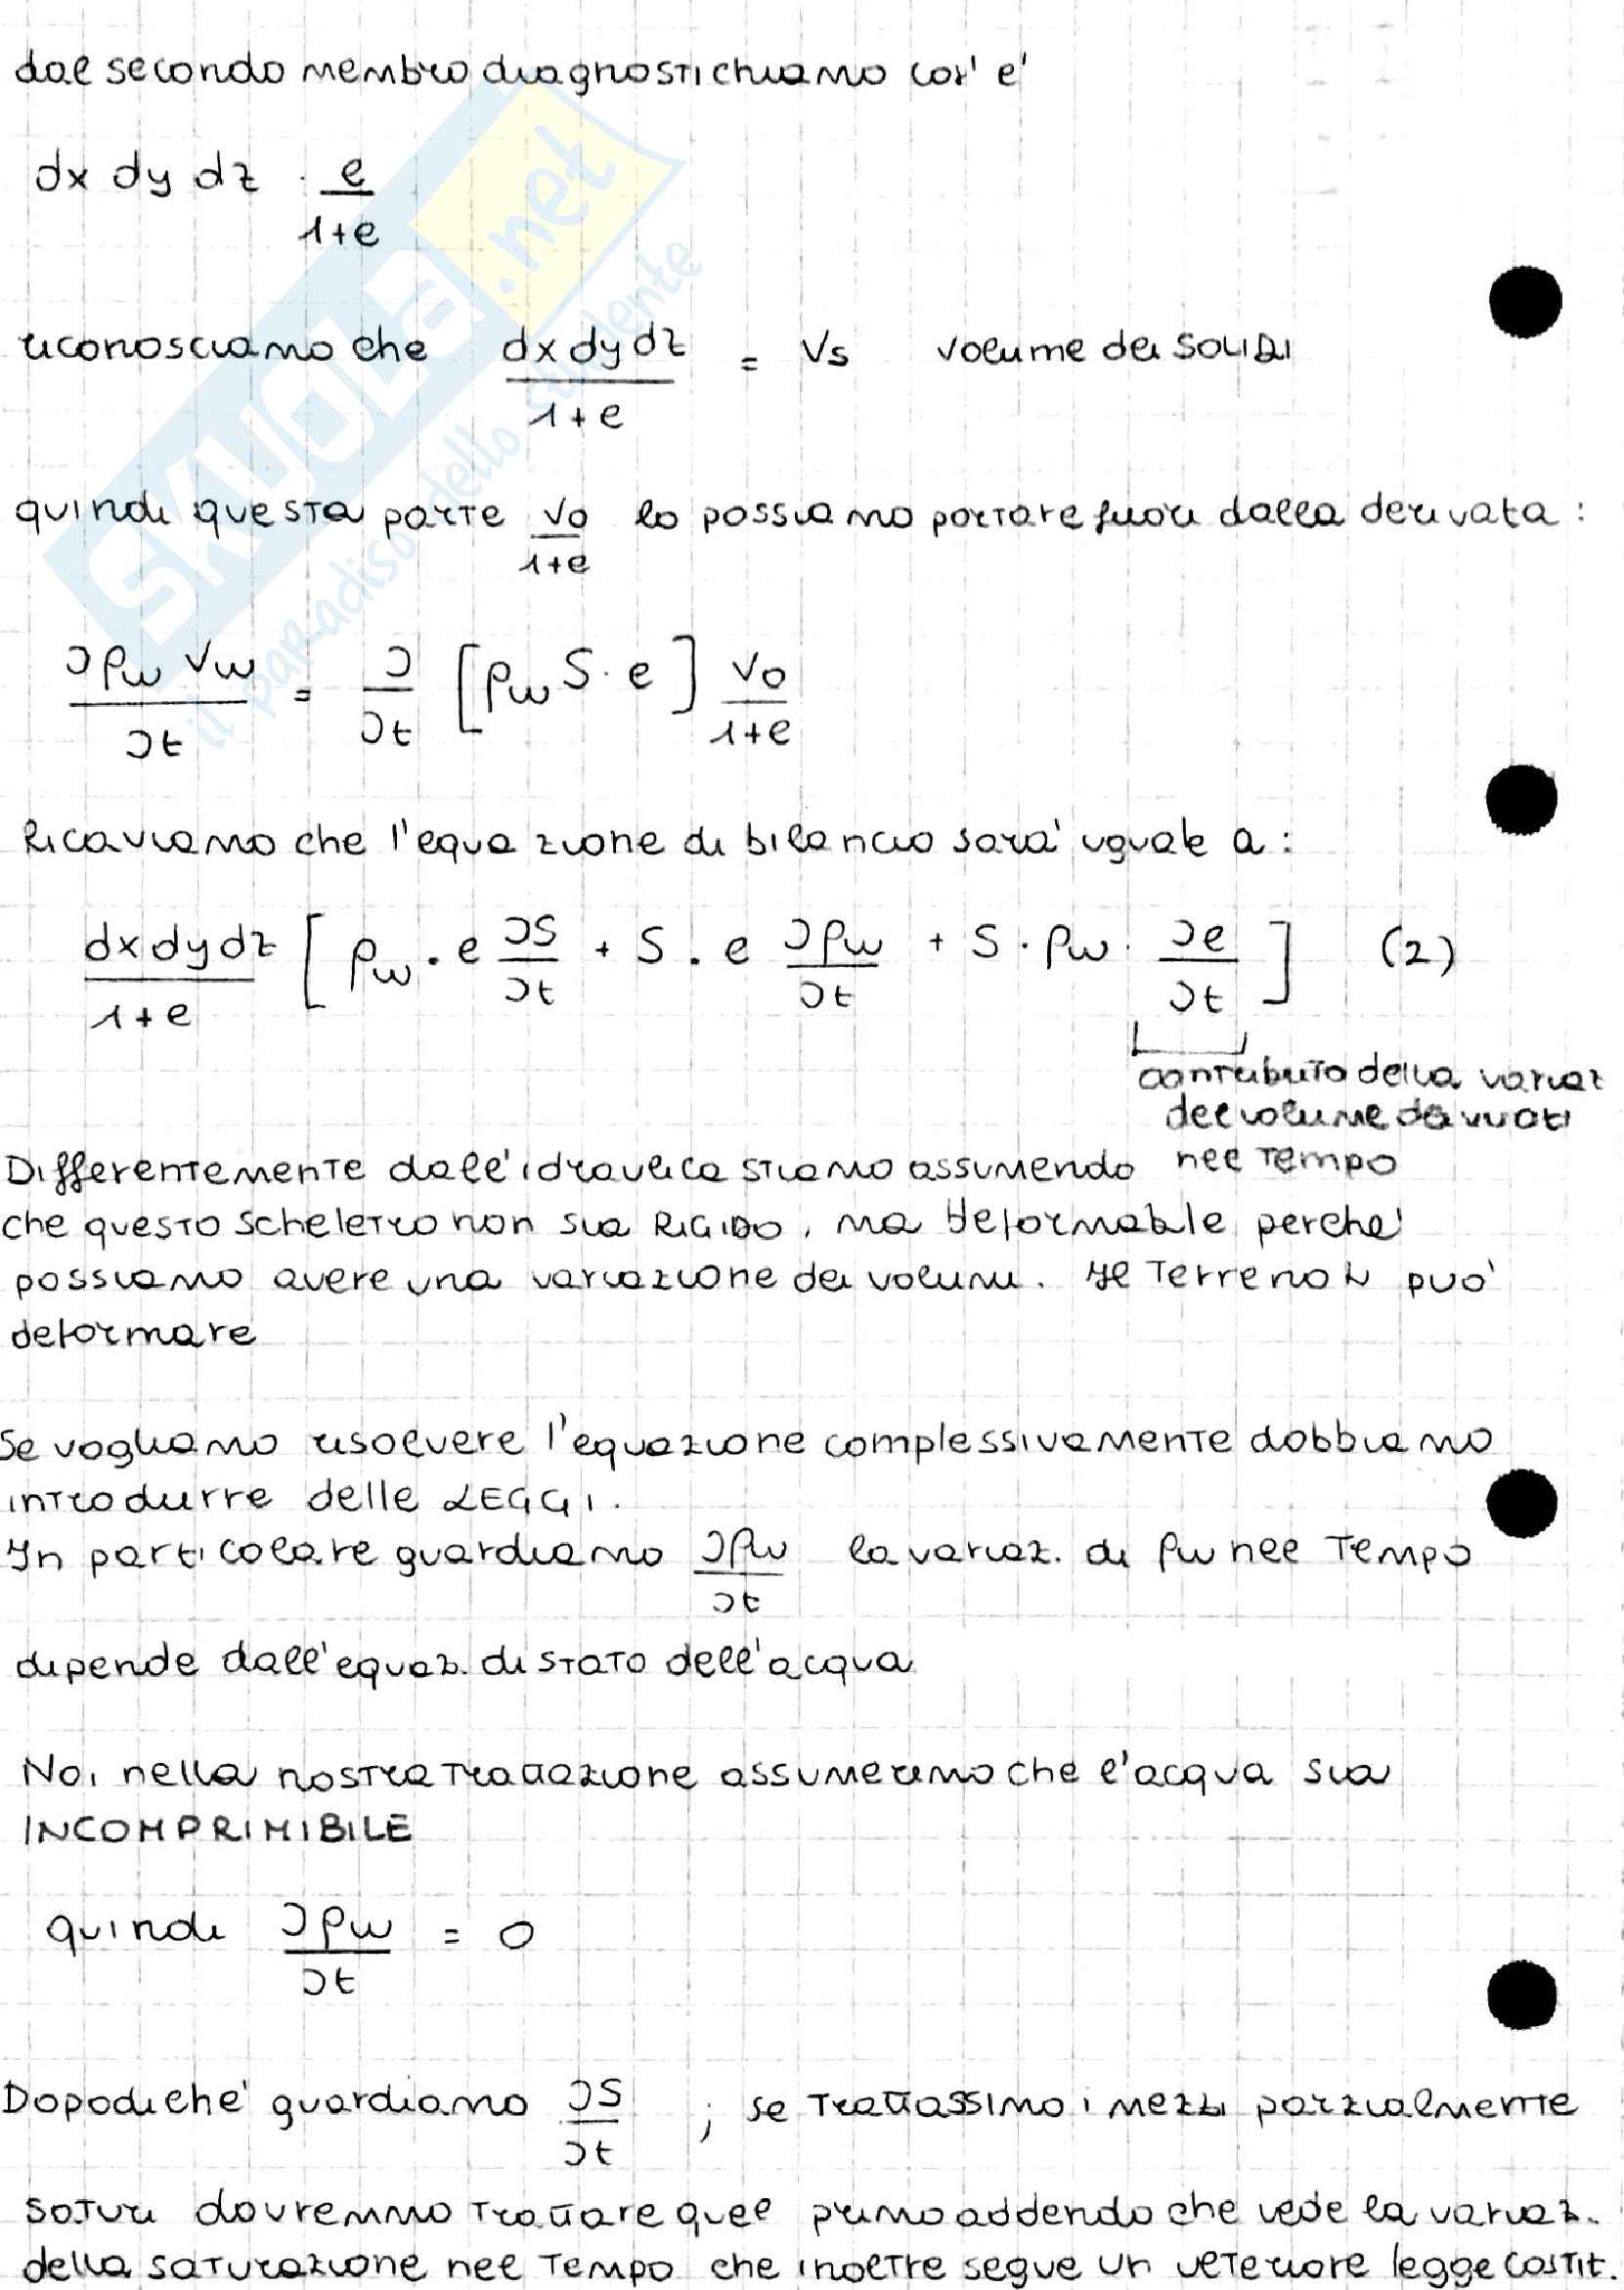 dal secondo membro diagnostichiamo cos' e'
dx dy dz · e/(1+e)
riconosciamo che dx dy dz/(1+e) = Vs volume dei SOLIDI
quindi questa parte Vo/(1+e) lo possiamo portare fuori dalla derivata :
∂ρw Vw/∂t = ∂/∂t [ρw S · e] Vo/(1+e)
Ricaviamo che l'equazione di bilancio sara' uguale a :
dx dy dz/(1+e) [ρw · e ∂S/∂t + S · e ∂ρw/∂t + S · ρw · ∂e/∂t] (2)
contributo della variaz
del volume dei vuoti
nel tempo
Differentemente dall'idraulica stiamo assumendo
che questo scheletro non sia RIGIDO, ma deformabile perche'
possiamo avere una variazione dei volumi. Il terreno si può
deformare
Se vogliamo risolvere l'equazione complessivamente dobbiamo
introdurre delle LEGGI.
In particolare guardiamo ∂ρw/∂t la variaz. di ρw nel tempo
dipende dall'equaz. di stato dell'acqua
Noi nella nostra trattazione assumeremo che l'acqua sia
INCOMPRIMIBILE
quindi ∂ρw/∂t = 0
Dopodiche' guardiamo ∂S/∂t ; se trattassimo i mezzi parzialmente
saturi dovremmo trattare quel primo addendo che vede la variaz.
della saturazione nel tempo che inoltre segue un ulteriore legge costit.
SKUOLA.net
il paradiso dello studente